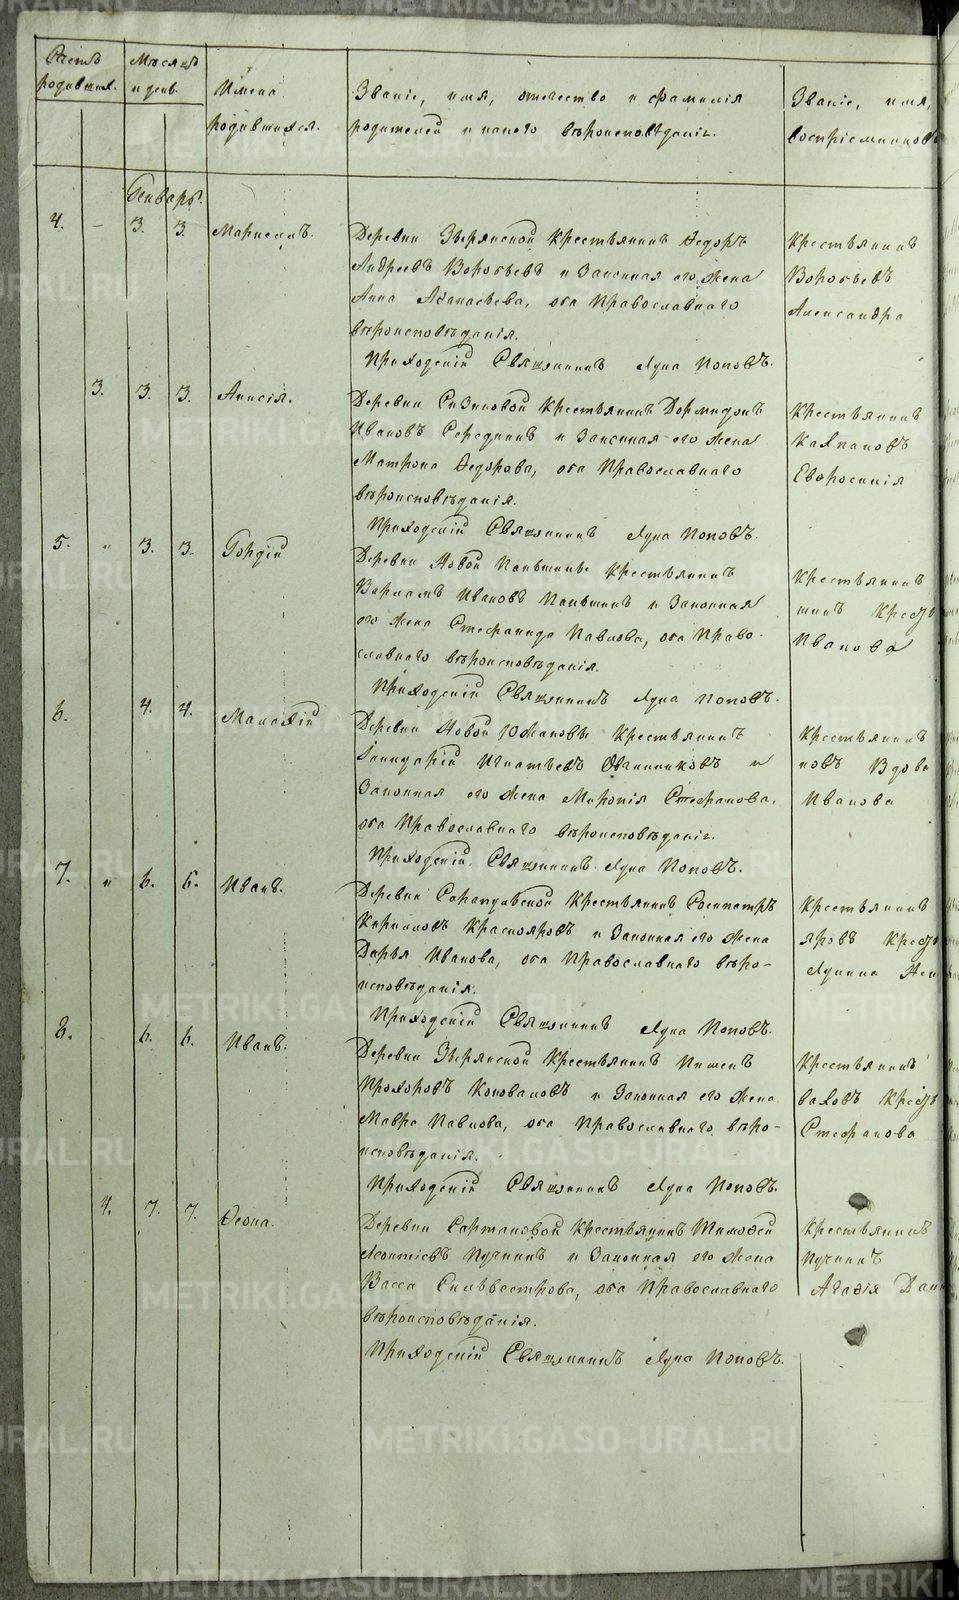 Счетъ родившихся.
Мѣсяцъ и день.
Имена родившихся.
Званіе, имя, отчество и фамилія
родителей и какого вѣроисповѣданія.
Званіе, имя,
воспріемниковъ
Генварь.
4. – 3. 3. Маркеллъ.
Деревни Зырянской Крестьянинъ Ѳедоръ
Андреевъ Воробьевъ и Законная его Жена
Анна Аѳанасьева, оба Православнаго
вѣроисповѣданія.
Крестьянинъ
Воробьевъ
Александра
Приходскій Священникъ Лука Поповъ.
3. 3. 3. Анисія.
Деревни Сизиковой Крестьянинъ Дормидонъ
Ивановъ Середкинъ и Законная его Жена
Матрона Ѳедорова, оба Православнаго
вѣроисповѣданія.
Крестьянинъ
Евфросинія
Приходскій Священникъ Лука Поповъ.
5. " 3. 3. Гордій
Деревни Новой Паньшиной Крестьянинъ
Варлаамъ Ивановъ Паньшинъ и Законная
его Жена Стефанида Павлова, оба Право-
славнаго вѣроисповѣданія.
Крестьянинъ
шинъ Крест
Иванова
Приходскій Священникъ Лука Поповъ.
6. 4. 4. Малахій
Деревни Новой Южаковой Крестьянинъ
Игнатьевъ Овчинниковъ и
Законная его Жена Миронія Стефанова,
оба Православнаго вѣроисповѣданія.
Крестьянинъ
ковъ Вдова
Иванова
Приходскій Священникъ Лука Поповъ.
7. " 6. 6. Иванъ.
Деревни Сарапуловской Крестьянинъ Сосипатръ
Кириловъ Краснояровъ и Законная его Жена
Дарья Иванова, оба Православнаго вѣро-
исповѣданія.
Крестьянинъ
яровъ Крест
Приходскій Священникъ Лука Поповъ.
8. 6. 6. Иванъ.
Деревни Зырянской Крестьянинъ Пименъ
Прохоровъ Коноваловъ и Законная его Жена
Мавра Павлова, оба Православнаго вѣро-
исповѣданія.
Крестьянинъ
валовъ Крест
Стефанова
Приходскій Священникъ Лука Поповъ.
4. 7. 7. Ѳеона.
Деревни Сартаковой Крестьянинъ Тимоѳей
Леонтіевъ Пучкинъ и Законная его Жена
Васса Сильвестрова, оба Православнаго
вѣроисповѣданія.
Крестьянинъ
Пучкинъ
Агафія Дани
Приходскій Священникъ Лука Поповъ.
METRIKI.GASO-URAL.RU